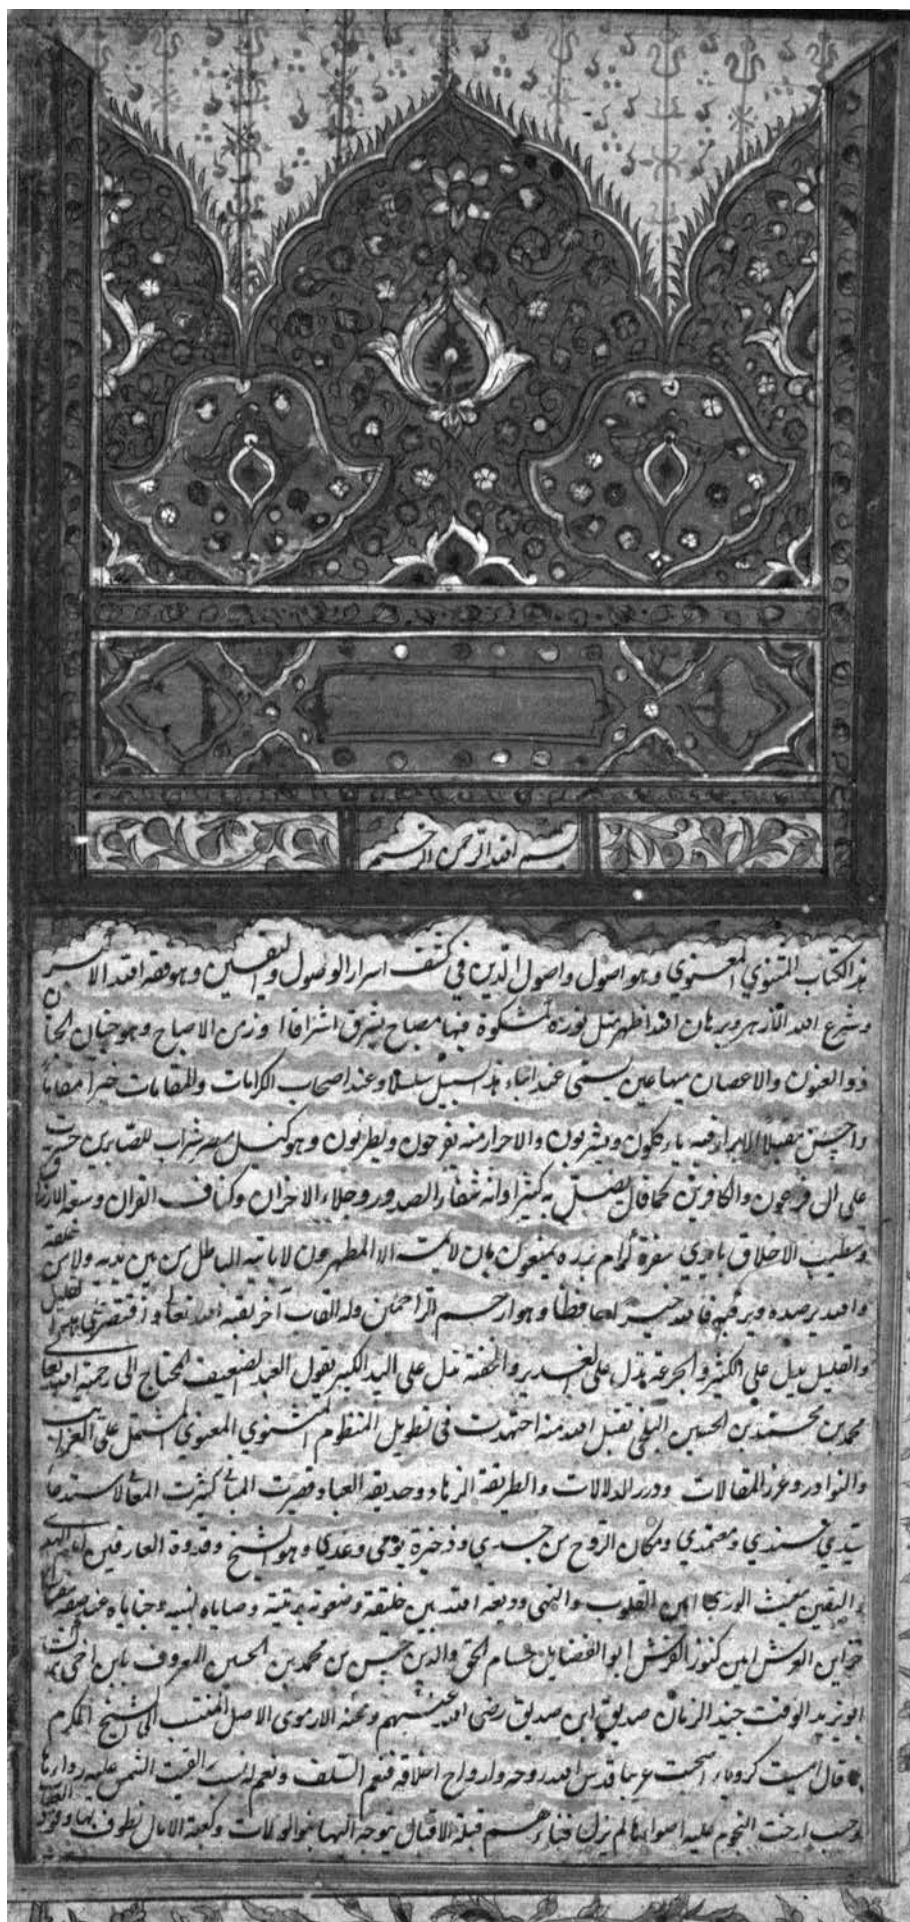 بسم الله الرحمن الرحیم
هذا الکتاب المثنوی المعنوی وهو اصول واصول الدین فی کشف اسرار الوصول والیقین وهو فقه الله الاکبر
وشرع الله الازهر وبرهان الله اظهر مثل نوره کمشکوة فیها مصباح یشرق اشراقا انور من الاصباح وهو جنان الجنان
ذو العیون والاغصان منها عین یسمی عند ابناء هذا السبیل سلسبیلا وعند اصحاب الکرامات والمقامات خیر مقاما
واحسن مقیلا الابرار فیه یاءکلون ویشربون والاحرار منه یفرحون ویطربون وهو کنیل مصر شراب للصابرین حسرت
علی ال فرعون والکافرین کما قال یضل به کثیرا وانه شفاء الصدور وجلاء الاحزان وکشاف القران وسعة الارزاق
وتطییب الاخلاق بایدی سفرة کرام بررة یمنعون بان لا یمسه الا المطهرون لا یاتیه الباطل من بین یدیه ولا من خلفه
والله یرصده ویرقبه فالله خیر حافظا وهو ارحم الراحمین وله القاب آخر لقبه الله تعالی واقتصرنا بهذا القلیل
والقلیل یدل علی الکثیر والجرعة تدل علی الغدیر والحفنة تدل علی البیدر الکبیر یقول العبد الضعیف المحتاج الی رحمة الله تعالی
محمد بن محمد بن الحسین البلخی تقبل الله منه اجتهدت فی تطویل المنظوم المثنوی المعنوی المشتمل علی الغرایب
والنوادر وغرر المقالات ودرر الدلالات والطریقة الزهاد وحدیقة العباد قصیرت المبانی کثیرت المعانی لاستدعاء
سیدی وسندی ومعتمدی ومکان الروح من جسدی وذخیرة یومی وغدی وهو الشیخ وقدوة العارفین امام الهدی
والیقین مغیث الوری امین القلوب والنهی ودیعة الله بین خلیقته وصفوته بریته وصایاه لنبیه وخبایاه عند صفیه مفتاح
خزاین العرش امین کنوز الفرش ابو الفضایل حسام الحق والدین حسن بن محمد بن الحسین المعروف بابن اخی ترک
ابو یزید الوقت جنید الزمان صدیق ابن صدیق رضی الله عنهم وعنه الارموی الاصل المنتسب الی الشیخ المکرم
قال امسیت کردیا و اصبحت عربیا قدس الله روحه وارواح اخلافه فنعم السلف ونعم له نسب القیت الشمس علیه رداءها
وحسب ارخت النجوم علیه اضواءها لم یزل فناءهم قبلة الاقبال یتوجه الیها بنو الولات وکعبة الامال یطوف بها وفود